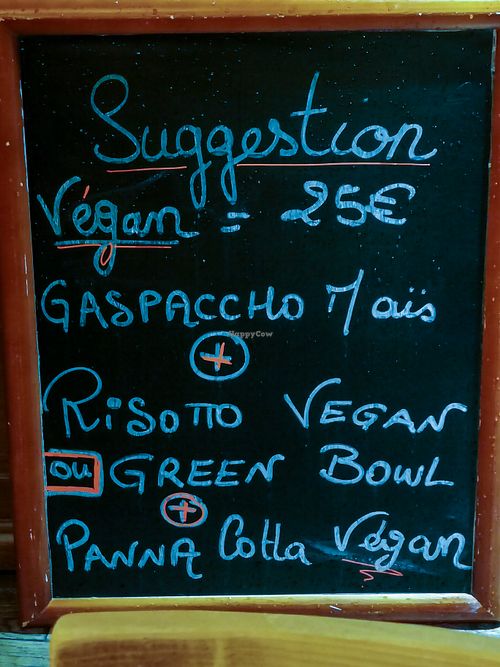 Suggestion
Végan = 25€
GASPACCHO Maïs
HappyCow
+
RiSOTTO VEGAN
ou GREEN BOWL
+
PANNA Cotta Végan